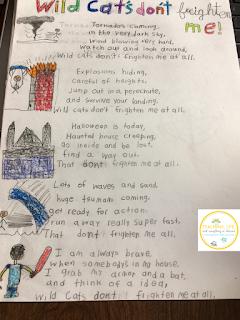 Wild Cats don't frighten
me!
Tornado's coming,
in the very dark sky,
Wind blowing very hard,
Watch out and look around,
Wild cats don't frighten me at all.
Explosions hiding,
Careful of heights,
Jump out in a parachute,
and survive your landing.
Wild cats don't frighten me at all.
Halloween is today,
Haunted house creeping,
Go inside and be lost,
find a way out.
That don't frighten me at all.
Lots of waves and sand,
huge tsunami coming,
get ready for action.
run away really super fast,
That don't frighten me all.
I am always brave,
When somebody's in my house,
I grab my armor and a bat,
and think of a idea,
Wild Cats don't frighten me at all.
TEACHING LIFE